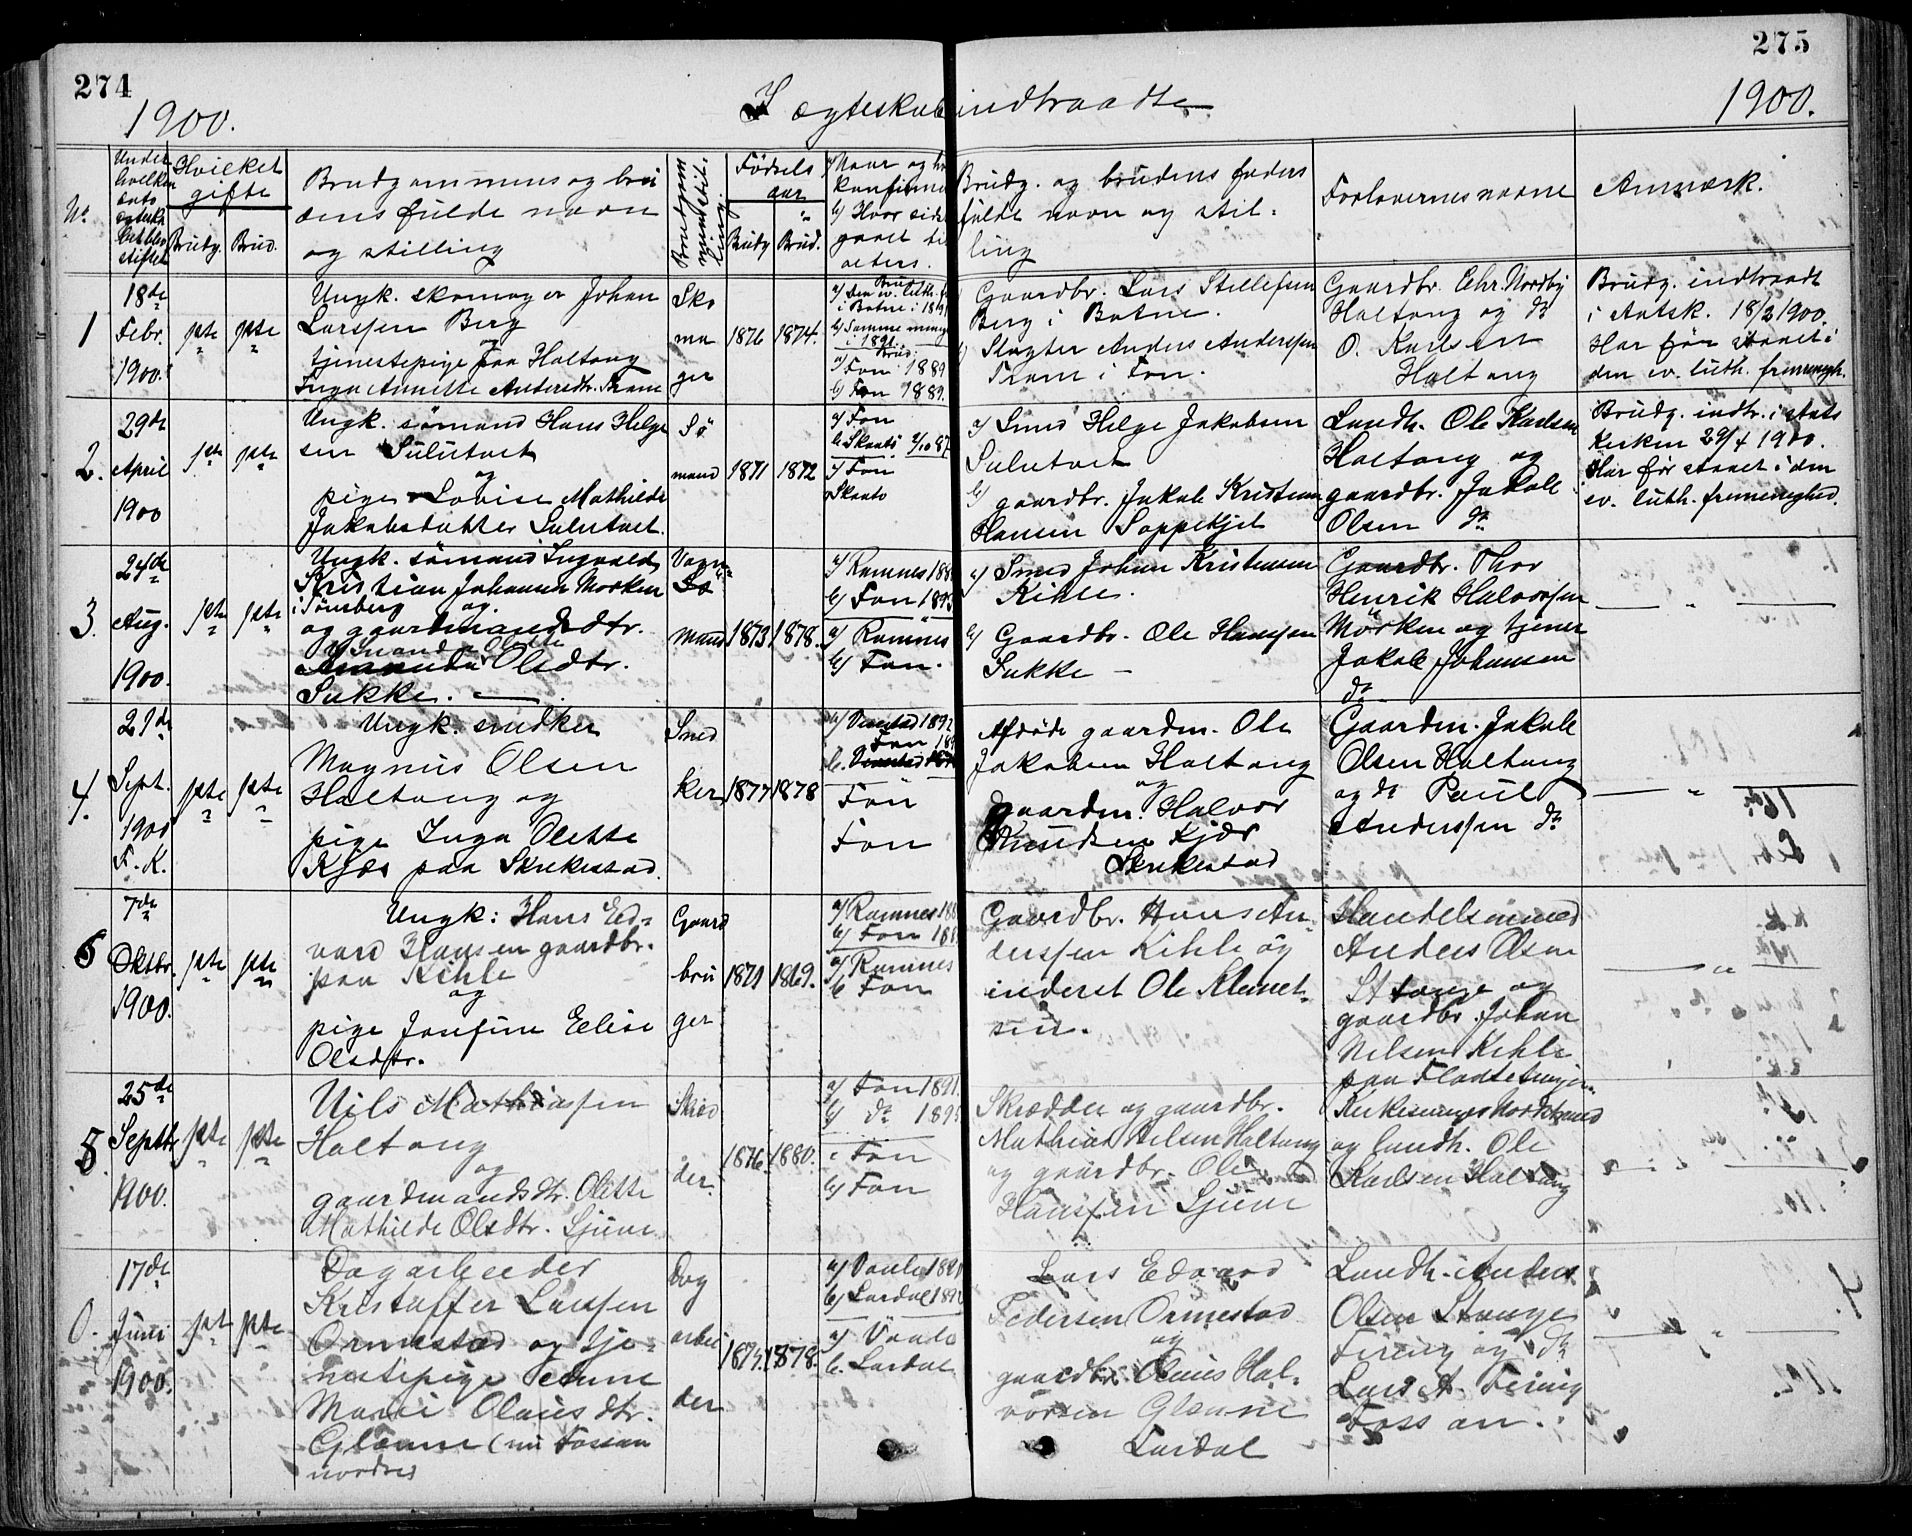 274
275
1900.
I ægteskab indtraadte
1900.
No
Under hvilken dato ægteskabet blev stiftet
Hvilket gifte
Brudg. Brud.
Brudgommens og bru
dens fulde navn
og stilling
Fødsels
aar
Brudg Brud.
Brudg. og brudens faders
fulde navn og stil-
ling
Forlovernes navne
Anmærk.
1
18de
Febr.
1900.
1ste 1ste
Ungk. skomager Johan
Larssen Berg
og
tjenestepige paa Haltang
Sko
ma
ger
1876 1874.
a) Fon 1889
b) Fon 1889.
Gaardbr. Lars Stillefsen
Berg i Botne.
Slagter Anders Anderssen
i Fon.
Gaardbr. Chr. Nordby
Haltang og do
O. Karlsen
Haltang
Brudg. indtraadt
i statsk. 18/2 1900.
Har før staaet i
den ev. luth. frimenigh.
2.
29de
April
1900
1ste 1ste
Ungk. sømand Hans Helge
sen Sulutvet
og
pige Lovise Mathilde
Jakobsdatter Sulutvet.
Sø
mand
1871 1872
a) Fon
b. Skaatø
a) Fon
Skaatø
a) Smed Helge Jakobsen
Sulutvet
b)
gaardbr. Jakob Kristian
Hansen Soppekjil
Landh. Ole Karlsen
Haltang og
gaardbr. Jakob
Olsen do
Brudg. indtr. i stats
kirken 29/4 1900.
Har før staaet i den
ev. luth. frimenighed.
3.
24de
Aug.
1900.
1ste 1ste
Ungk. sømand Ingvald
Kristian Johansen Morken
i Tønsberg og
og gaardmandsdtr.
Olsdtr.
Sukke.
Sø
mand
1873 1878.
a) Ramnes
b) Fon
a) Ramnes
b) Fon.
a) Smed Johan Kristensen
Kihle.
b) Gaardbr. Ole Hanssen
Sukke
Gaardbr. Thor
Henrik Halvorsen
Mørken og tjener
Jakob Johansen
do
4.
21de
Sept.
1900
F. K.
1ste 1ste
Ungk. snedker
Magnus Olsen
Haltang og
pige Inga Olette
Kjær paa Skrikestad.
Sned
ker
1877 1878
Fon
Fon
Afdøde gaardm. Ole
Jakobsen Haltang
og
gaardm. Halvor
Knudsen Kjær
Skrikestad
Gaardm. Jakob
Olsen Haltang
og do Paul
Anderssen do
6
7de
Oktbr.
1900.
1ste 1ste
Ungk: Hans Ed-
vard Hansen gaardbr.
paa Kihle
og
pige Jonfine Elise
Olsdtr.
Gaard
bru
ger
1871 1869.
a) Ramnes
b) Fon
a) Ramnes
b Fon
Gaardbr. Hans An-
derssen Kihle og
inderst Ole Klemet-
sen.
Handelsmand
Anders Olsen
Stange og
gaardbr. Johan
Nilsen Kihle
paa
5
25de
Septbr
1900.
1ste 1ste
Nils Mathiassen
Haltang
og
gaardmandsdtr. Olette
Mathilde Olsdtr. Sjuve
Skræd
der.
1876 1880.
a) Fon 1891
b) do
Fon
b) Fon
Skrædder og gaardbr.
Mathias Nilsen Haltang
og gaardbr. Ole
Hanssen Sjuve
Kirkesanger
og landh. Ole
Karlsen Haltang
0.
17de
Juni
1900.
1ste 1ste
Dagarbeider
Kristoffer Larssen
Ormestad og tje-
nestepige
Marie Olausdtr.
Glenne (nu Fossan
nordre)
Dag
arbei
der
1878.
a) Vaale
b) Lardal
a) Vaale
b. Lardal
Lars Edvard
Pedersen Ormestad
og
gaardbr. Olaus Hal-
vorsen Glenne
Lardal
Landh. Anders
Olsen Stange
Firing og do
Lars A. Firing
Fossan.